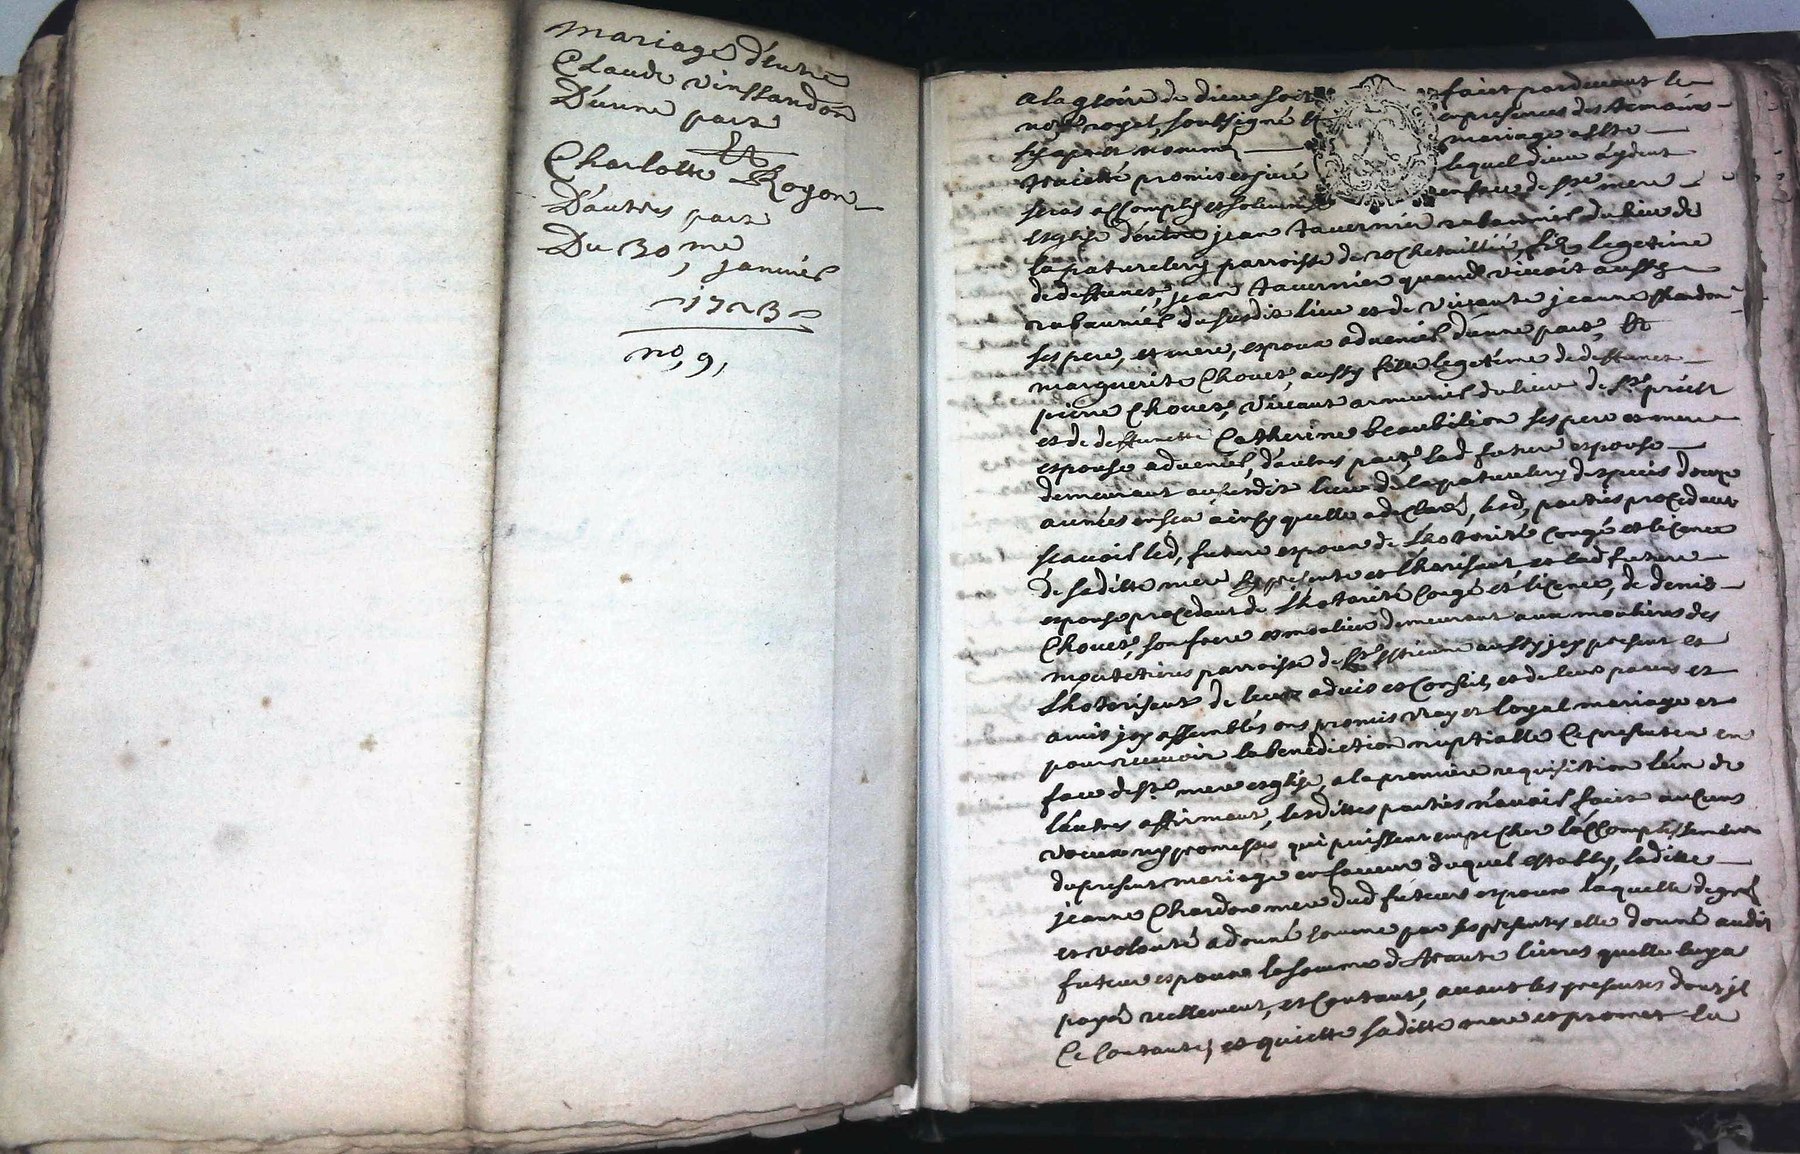 mariage d'entre
Claude vinssandon
D'une part
Et
Charlotte Royon
D'autres part
Du 30me
janvier
1723
no, 9,
A la gloire de dieu soit faict pardevant le
nore royal soubsigné et en presences des temoins
sy apres nommez mariage a esté
traicté promis et juré lequel dieu aydent
seras accomply et solennizé en face de ste mere
esglise d'entre jean tavernier rubannier du lieu de
la paturelery parroisse de rochetaillié, fils legetime
de deffunct, jean tavernier quand vivoit aussy
rubannier du susdit lieu et de vivante jeanne Chardon
ses pere, et mere, espoux advenier d'une part, Et
marguerite Chovet, aussy fille legetime de deffunct
pierre Chovet, vivant armurier du lieu de St priest
et de deffuncte Catherine beaubilion ses pere et mere
espouse advenier, d'autres part, lad future espouse
demeurant au susdit lieu de la paturelery despuis douze
années en sca ainsy quelle a declaré, lesd, parties procedant
scavoir led, future espoux de Lhotorité Congé et licence
de saditte mere sy presente et Lhorisant et lad future
espouse procedant de Lhotorité Congé et licence, de denis
Chovet, son frere esmoulier demeurant aux moulieres des
mortetieres parroisse de St Estienne aussy jcy present et
Lhotorisant de leurs advis et Conseil, et de leurs parens et
amis jcy assemblés ons promis vray et loyal mariage et
pour recevoir la benediction nuptialle Ce presenter en
face de ste mere esglise, a la premiere requisition l'un de
l'autres affirmant, lesdittes parties n'avoir faict aucuns
voeux ny promesses qui puissent empecher l'acComplissement
du present mariage en faveur duquel establyˏ laditte
jeanne Chardon mere dud future espoux laquelle de gré
et volonté a donné comme par ses presentes elle donne audit
future espoux la somme de trante livres quelle luy a
payé reellement, et Contant, avant les presentes dont jl
Ce Contante, et quiette saditte mere et promet la